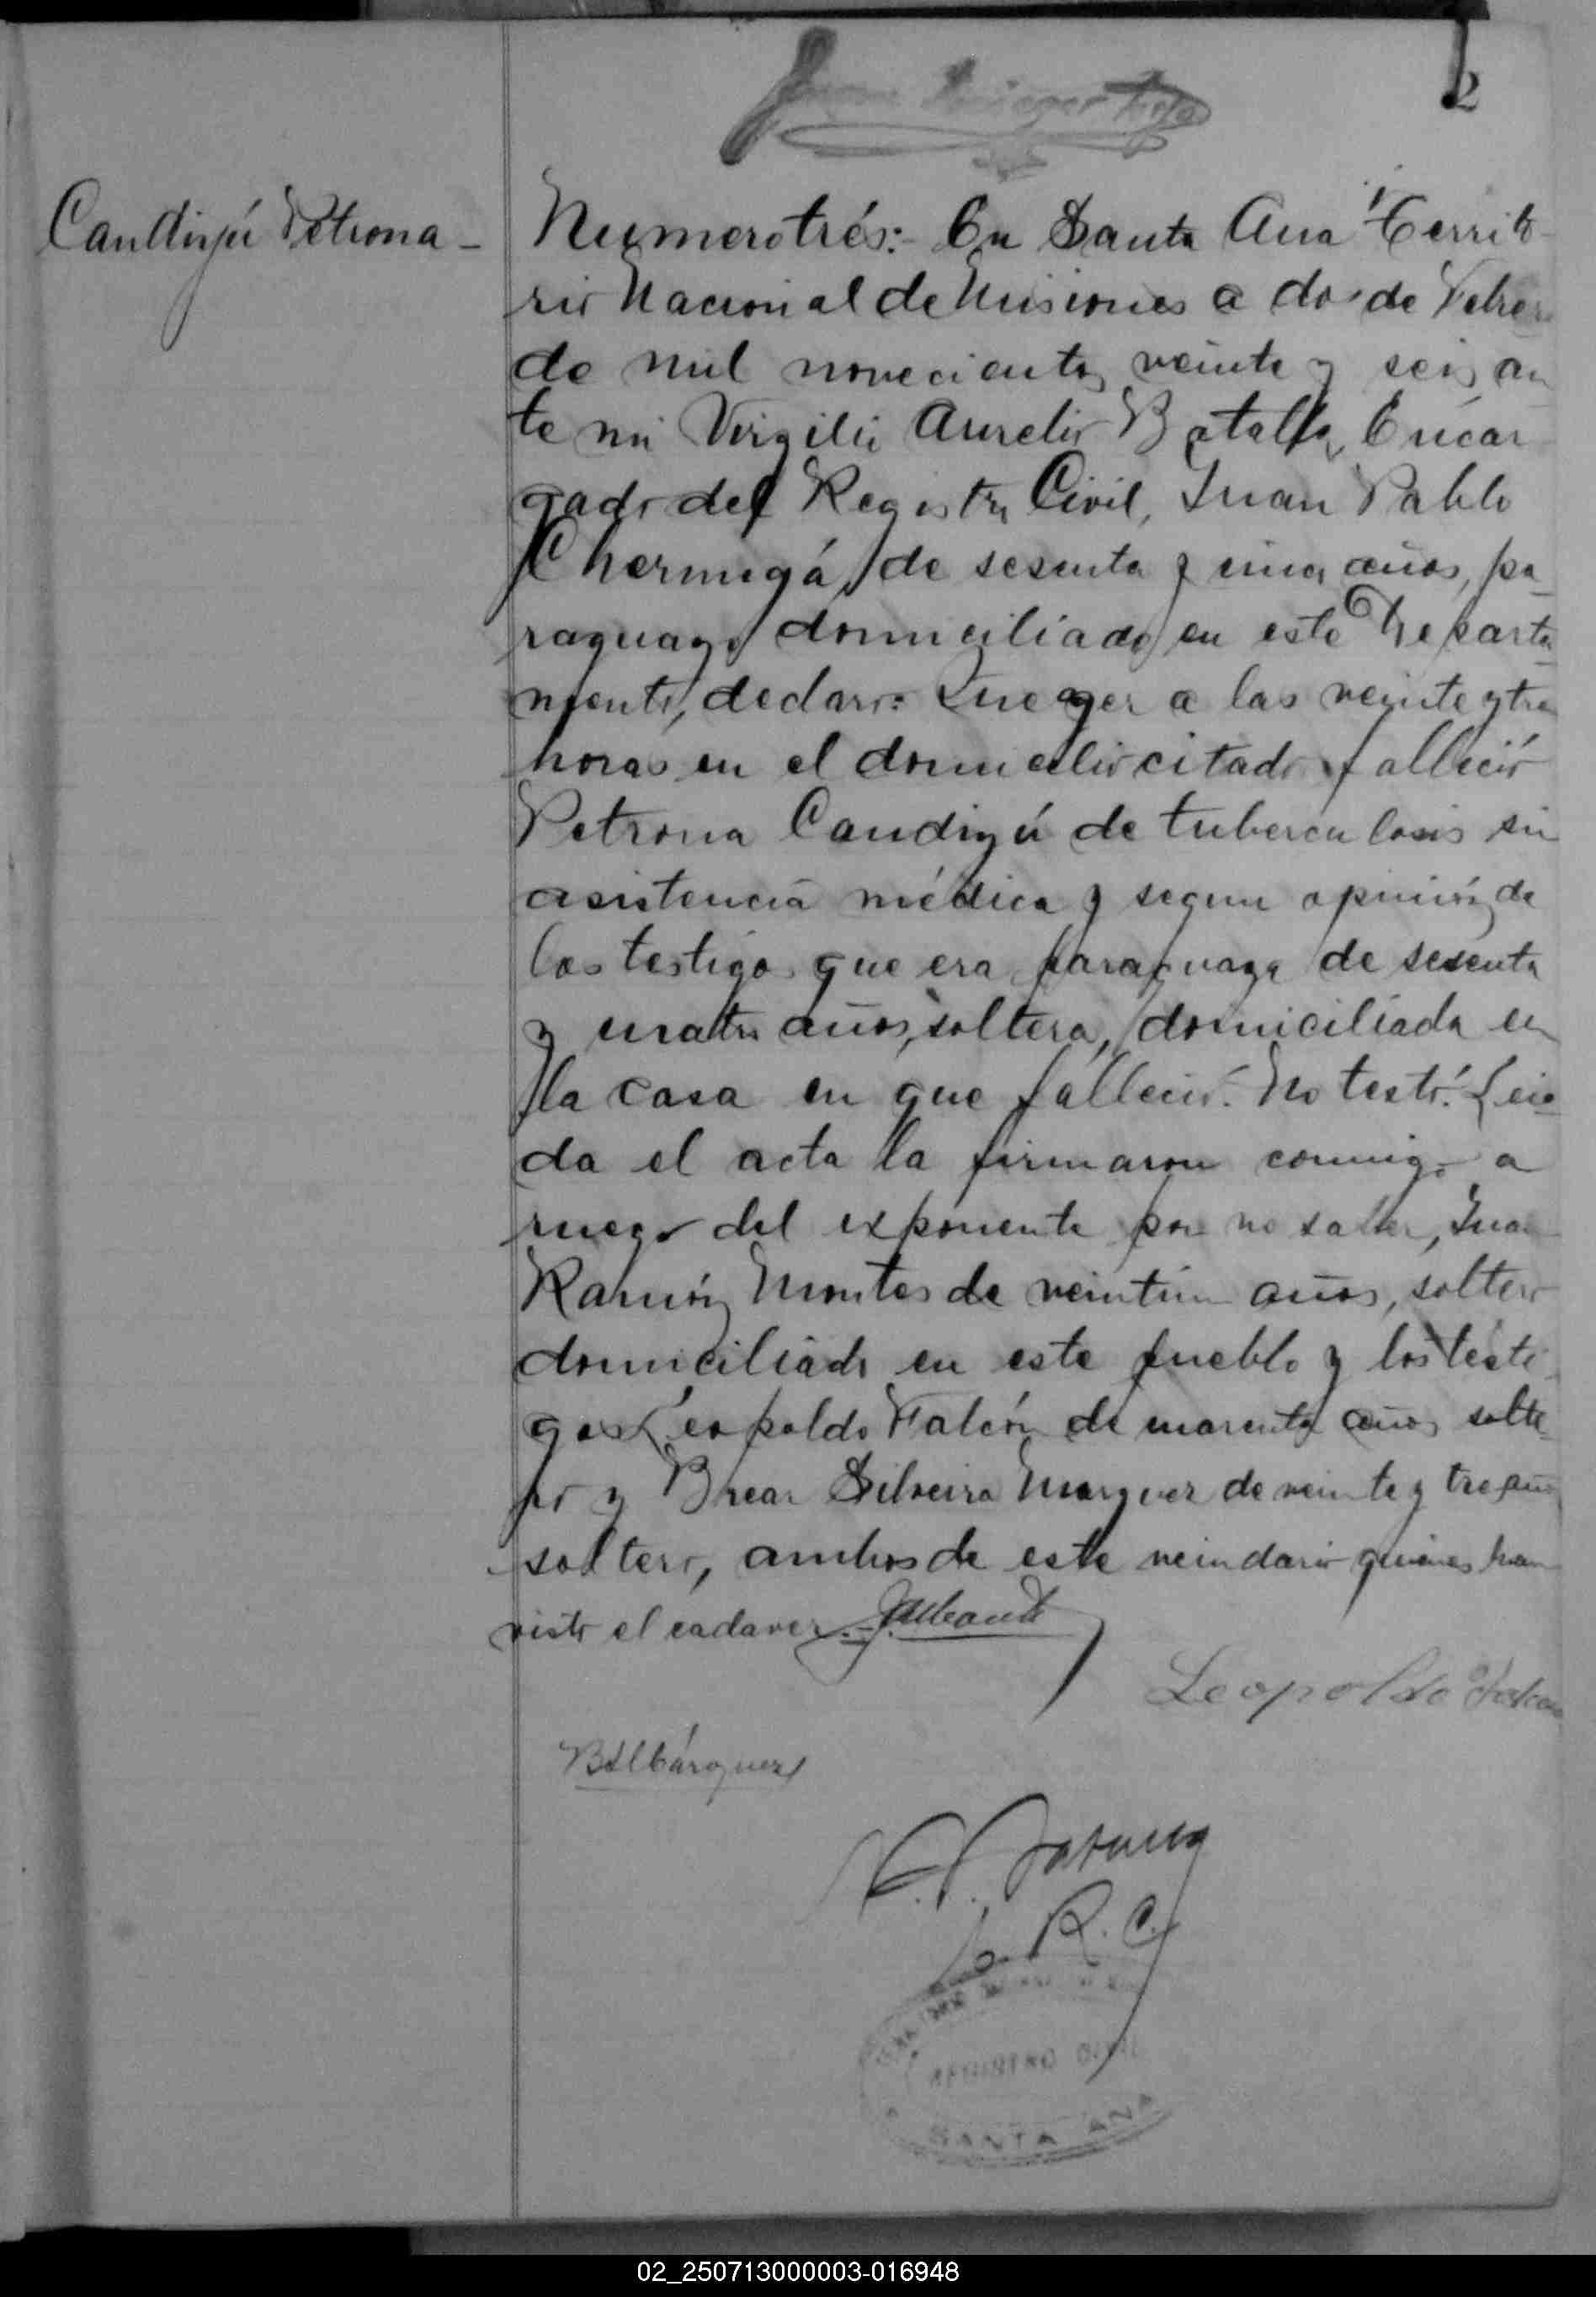 2
Candirjú Petrona -
Numero trés:- En Santa Ana Territo-
rio Nacional de Misiones a dos de Febrero
de mil novecientos veinte y seis, an
te mi Virgilio Aurelio Batalla, Encar
gado del Registro Civil, Juan Pablo
Chermegá, de sesenta y cinco años, pa-
raguayo domiciliado en este Departa-
mento, declaró: Que ayer a las veinte y tres
horas en el domicilio citado falleció
Petrona Candirjú de tuberculosis sin
asistencia médica y segun opinión de
los testigos, que era paraguaya de sesenta
y cuatro años, soltera, domiciliada en
la casa en que falleció. No testó. Lei-
da el acta la firmaron conmigo a
ruego del exponente por no saber, Juan
Ramón Montes de veintiun años, soltero
domiciliado en este pueblo y los testi-
gos Leopoldo Falcón de cuarenta años solte-
ro y Silveira Marquez de veinte y tres años
soltero, ambos de este vecindario quienes han
visto el cadaver.-
Leopoldo Falcon
E. R. C.
REGISTRO CIVIL
SANTA ANA
02_250713000003-016948